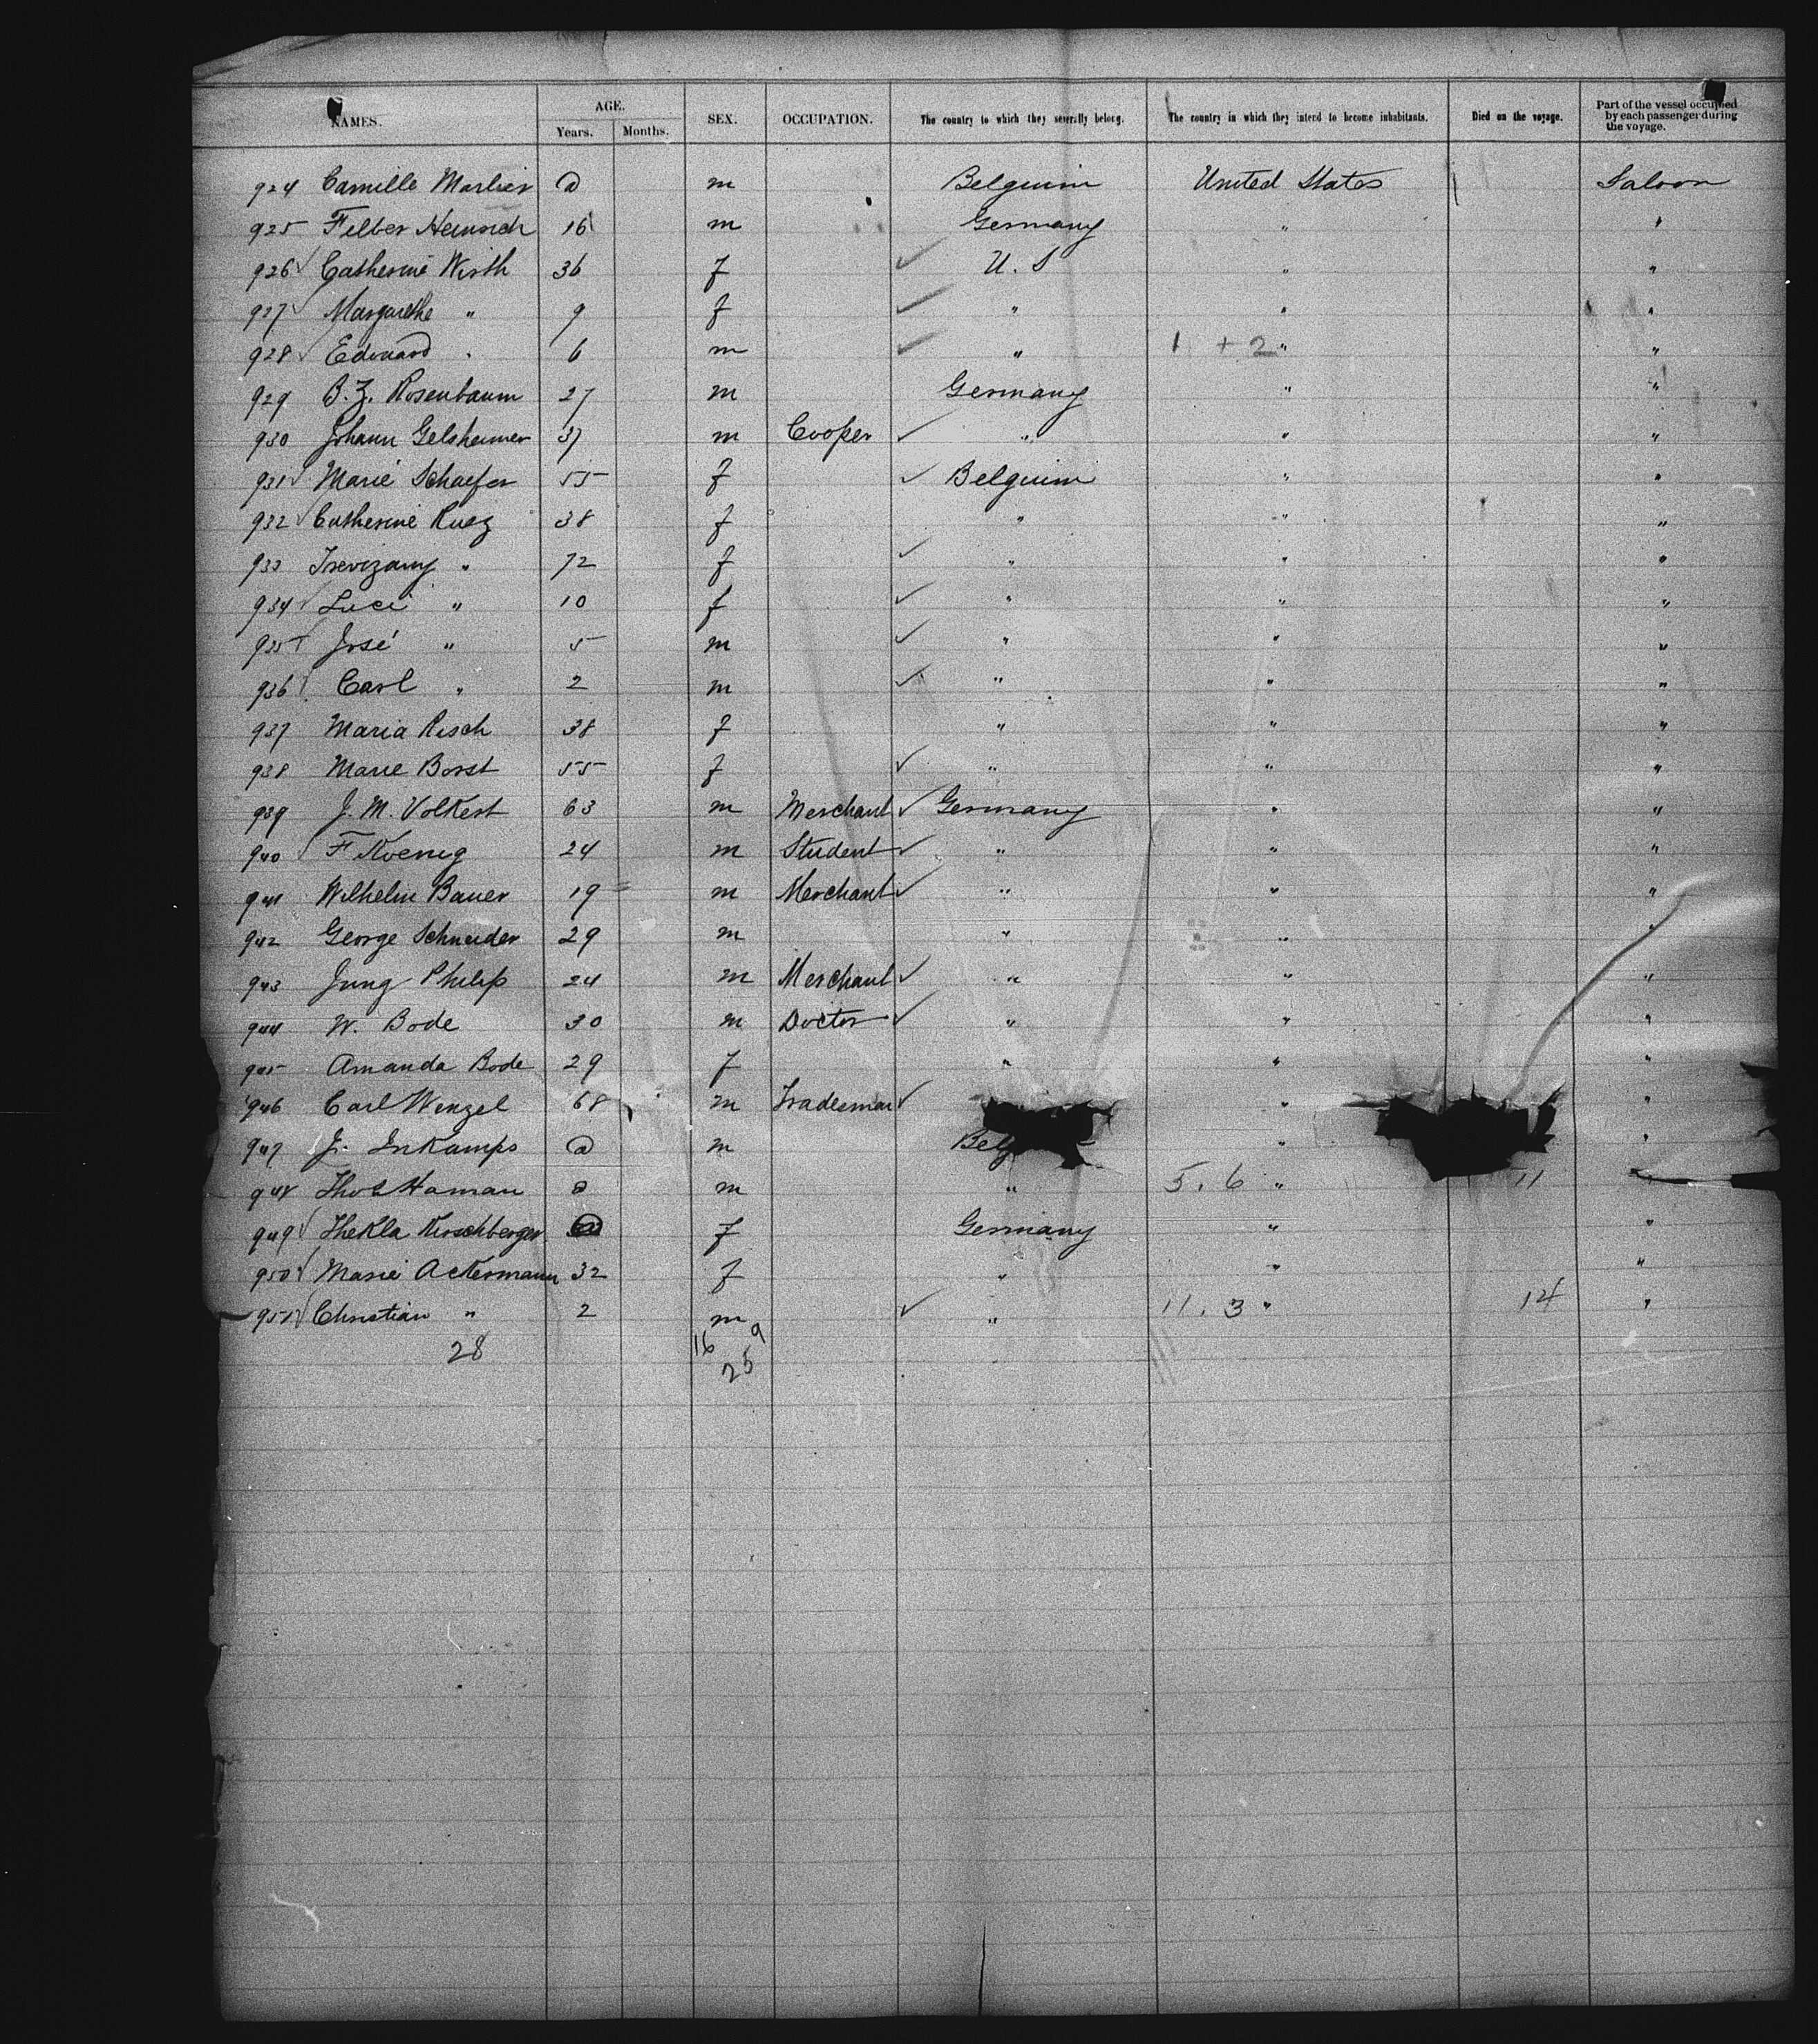 NAMES. AGE. Years. Months. SEX. OCCUPATION. The country to which they severally belong. The country in which they intend to become inhabitants. Died on the voyage. Part of the vessel occupied by each passenger during the voyage.
924 Camille Marlier a m Belguim United States Saloon
925 Felber Heinrich 16 m Germany " "
926 ✓ Catherine Wirth 36 f ✓ U. S " "
927 ✓ Margarethe " 9 f ✓ " " "
928 ✓ Edouard " 6 m ✓ " 1 + 2 " "
929 B. Z. Rosenbaum 27 m Germany " "
930 Johann Gelsheimer 37 m Cooper ✓ " " "
931 ✓ Marie Schaefer 55 f ✓ Belguim " "
932 ✓ Catherine Ruez 38 f " " "
933 " 72 f ✓ " " "
934 ✓ Luci " 10 f ✓ " " "
935 José " 5 m ✓ " " "
936 ✓ Carl " 2 m ✓ " " "
937 Maria Risch 38 f " " "
938 Marie Borst 55 f ✓ " " "
939 J. M. Volkert 63 m Merchant ✓ Germany " "
940 ✓ F Koenig 24 m Student ✓ " " "
941 Wilhelm Bauer 19 m Merchant ✓ " " "
942 George Schneider 29 m " " "
943 Jung Philip 24 m Merchant ✓ " " "
944 W. Bode 30 m Doctor ✓ " " "
945 Amanda Bode 29 f " " "
946 Carl Wenzel 68 m Tradesman ✓ " "
947 J. Inkamps a m Belg " "
948 Haman a m " 5. 6 " 11 "
949 ✓ Thekla Kirschberger f Germany " "
950 ✓ Marie Ackermann 32 f " " "
951 ✓ Christian " 2 m ✓ " 11. 3 " 14 "
28 16 9
25